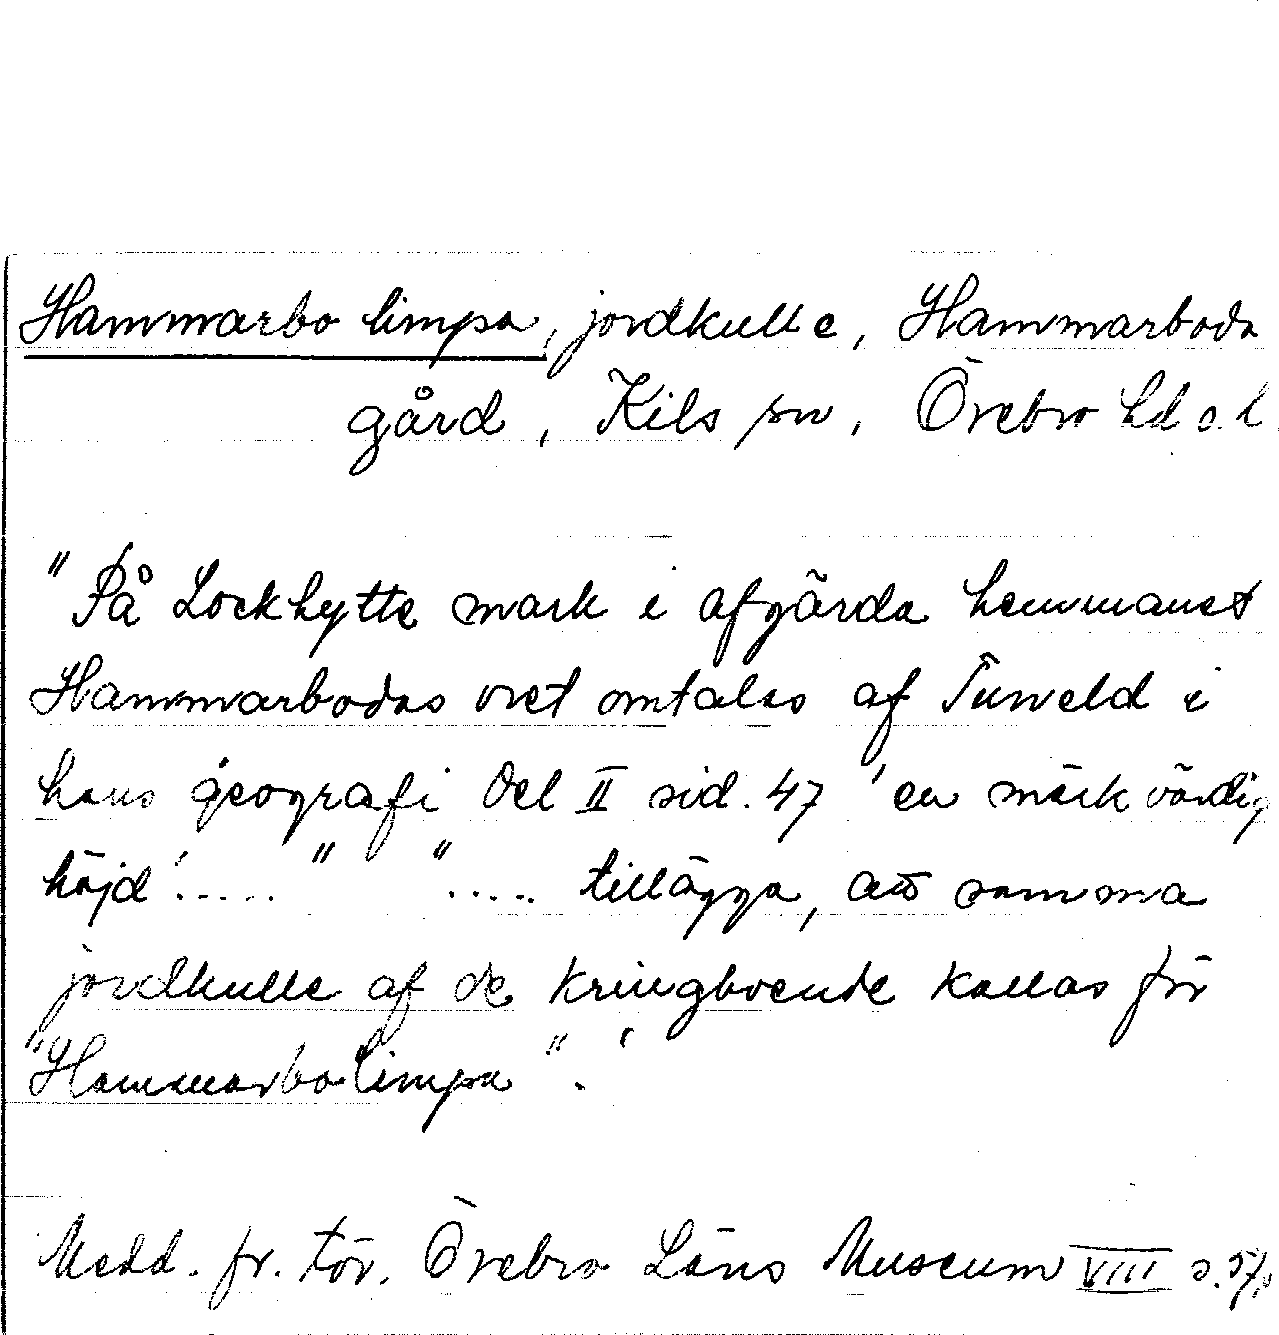 Hammarbo limpa, jordkulle, Hammarboda
gård, Kils sn, Örebro hd o. l
"På Lockhytte mark i afgärda hemmanet
Hammarbodas vret omtalas af Tuneld i
hans geografi Del II sid. 47 'en märkvärdig
höjd'....." ".... tillägga, att samma
jordkulle af de kringboende kallas för
"Hammarbolimpa"'.
Medd. fr. för. Örebro Läns Museum VIII s. 57,